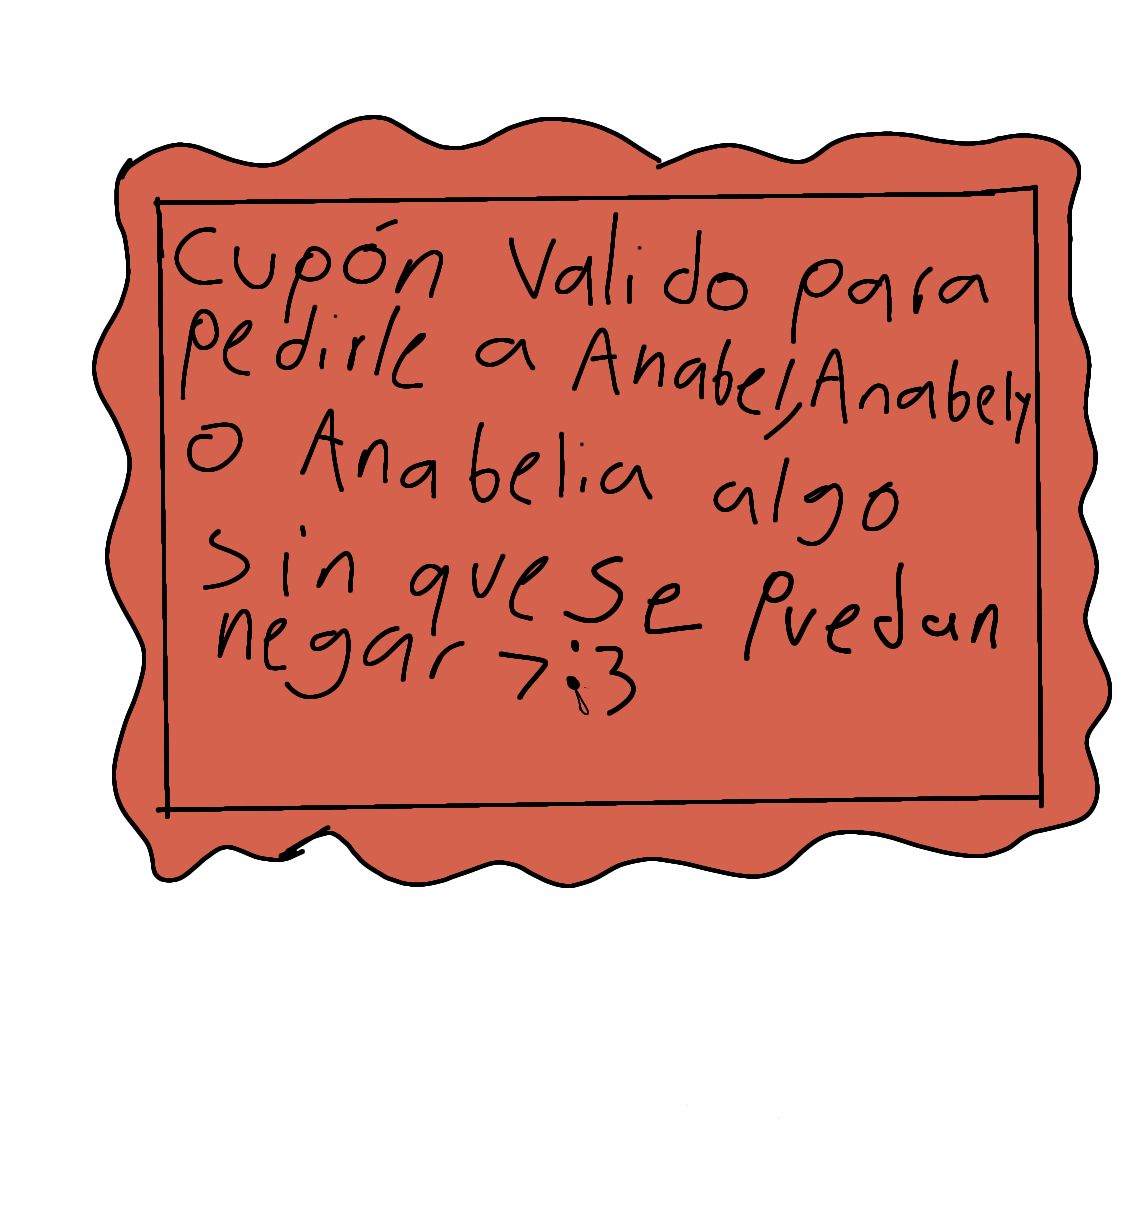 Cupón Valido para
pedirle a Anabel, Anabely
o Anabelia algo
sin que se puedan
negar >:3